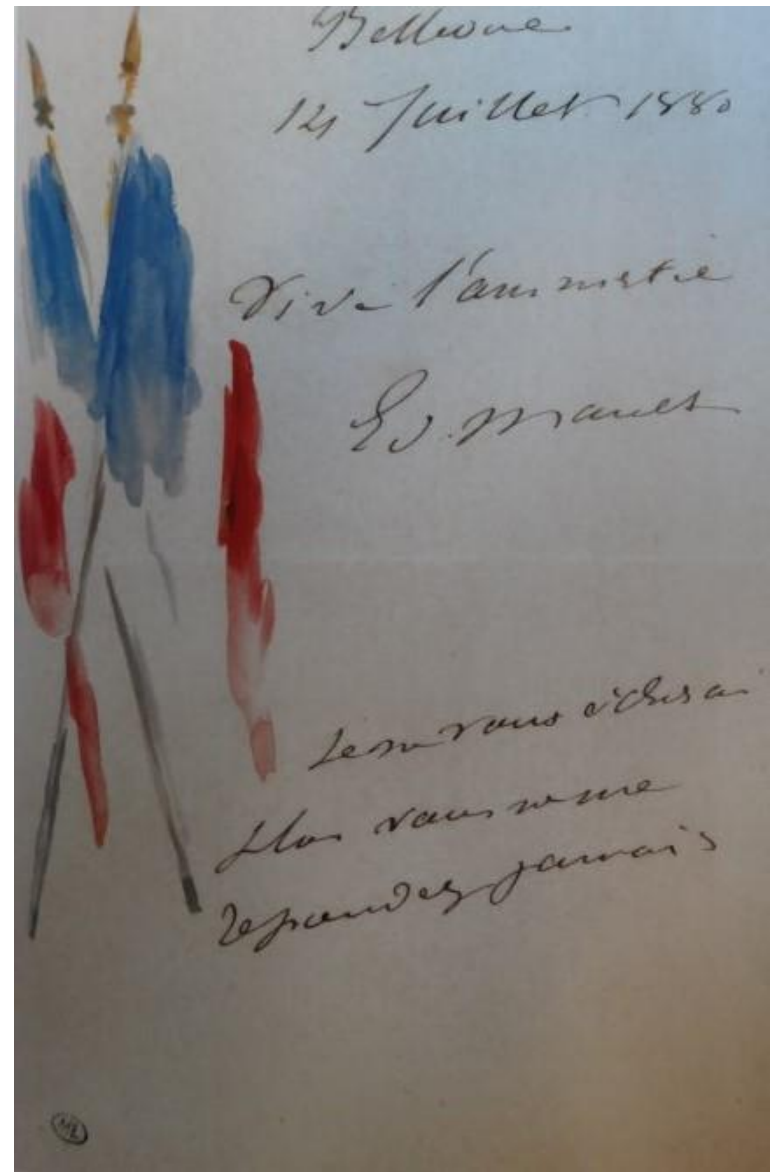 Bellevue
14 Juillet 1880
Vive l'amnistie
Ed. Manet
Je ne vous écrirai
plus vous ne me
repondez jamais
ML